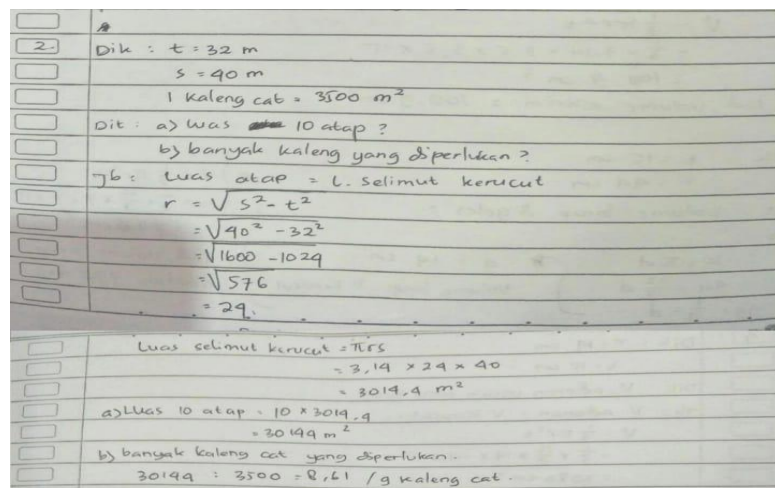 2. Dik : t = 32 m
s = 40 m
1 kaleng cat = 3500 m²
Dit : a) Luas 10 atap ?
b) banyak kaleng yang diperlukan ?
Jb : Luas atap = L. Selimut kerucut
r = √s² - t²
= √40² - 32²
= √1600 - 1024
= √576
= 24.
Luas selimut kerucut = πrs
= 3,14 × 24 × 40
= 3014,4 m²
a) Luas 10 atap = 10 × 3014,4
= 30144 m²
b) banyak kaleng cat yang diperlukan.
30144 : 3500 = 8,61 / 9 kaleng cat.